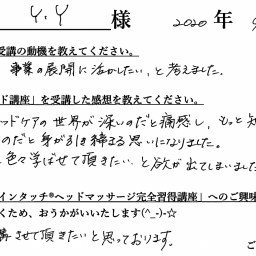 Y.Y 様 2020年
受講の動機を教えてください。
事業の展開に活かしたい、と考えました。
ド講座」を受講した感想を教えてください。
ッドケアの世界が深いのだと痛感し、もっと知
のだと身が引き締まる思いになりました。
色々学ばせて頂きたい、と欲が出てしまいました
インタッチ®ヘッドマッサージ完全習得講座」へのご興味
くため、おうかがいいたします(^_-)-☆
させて頂きたいと思っております。
ご